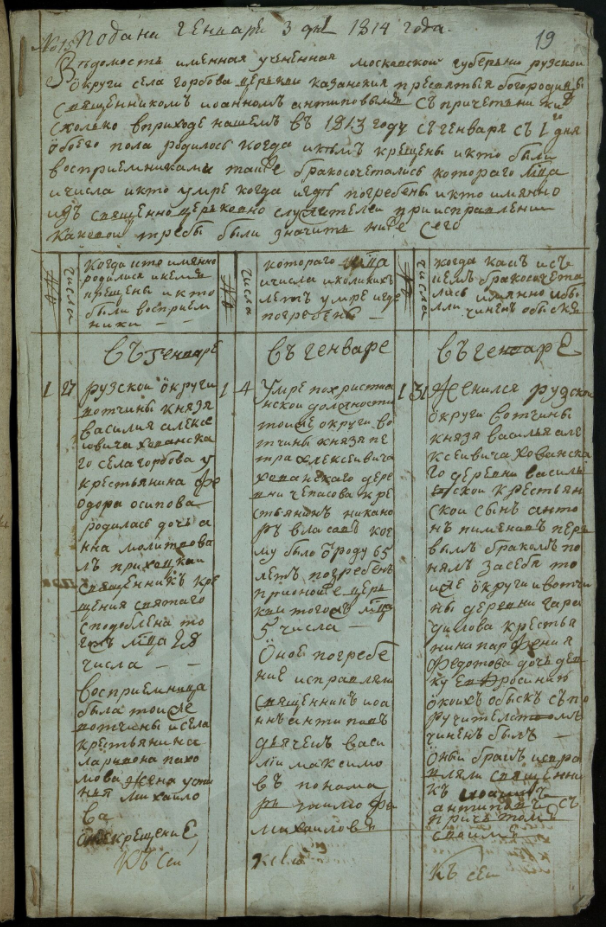 Подана Генваря 3 дня 1814 года.
19
Ведомость именная учиненная московской губернии рузской
округи села горбова церкви казанския пресвятыя богородицы
священникомъ иоанномъ антиповымъ съ причетники
сколко вприходе нашемъ въ 1813 году съ генваря съ 1го дня
обоего пола родилось когда и кѣмъ крещены и кто были
восприемниками также бракосочетались котораго мца
и числа и кто умре когда и где погребены и кто имянно
изъ священно церковно служителей при исправлении
каковои требы были значитъ ниже сего
числа
когда кто имянно
родились и кемъ
крещены и кто
были восприем
ники
числа
котораго мца
и числа и коликихъ
летъ умре и где
погребены
числа
когда какъ и съ
кемъ бракосочета
лись имянно и бы
ли чинены обыски
въ генваре
въ генваре
въ генваре
1 27
рузской округи
вотчины князя
василия алексе
евича хованска
го села горбова у
крестьянина фе
одора осипова
родилась дочь а
нна молитвова
лъ приходкии
священникъ кре
щения святаго
сподоблена то
гожъ мца 28
числа
восприемница
была тоиже
вотчины и села
крестьянина
лариона пахо
мова жена усти
нья михаило
ва
1 4
Умре по христиа
нской должности
тоиже округи во
тчины князя пе
тра алексеивича
хованскаго дере
вни чепасова кре
стьянинъ никано
ръ власовъ кое
му было отроду 65
летъ погребенъ
при оной церк
ви тогожъ мца
5 числа
Оное погребе
ние исправлялъ
священникъ иоа
ннъ антиповъ
дьячекъ васи
лий максимо
въ понома
рь
михаиловъ
1 31
Женился рузской
округи вотчины
князя василья але
ксеивича хованска
го деревни василь
евской крестьян
ской сынъ анто
нъ пименовъ пер
вымъ бракомъ по
нялъ за себя то
иже округи и вотчи
ны деревни гара
дилова крестья
нина парфения
федотова дочь дев
ку ефросинию
о коихъ обыскъ съ по
ручителствомъ
чиненъ былъ
Оный бракъ испра
вляли священни
къ иоаннъ
антиповъ съ
причетомъ
своимъ
Къ сей
Къ сей